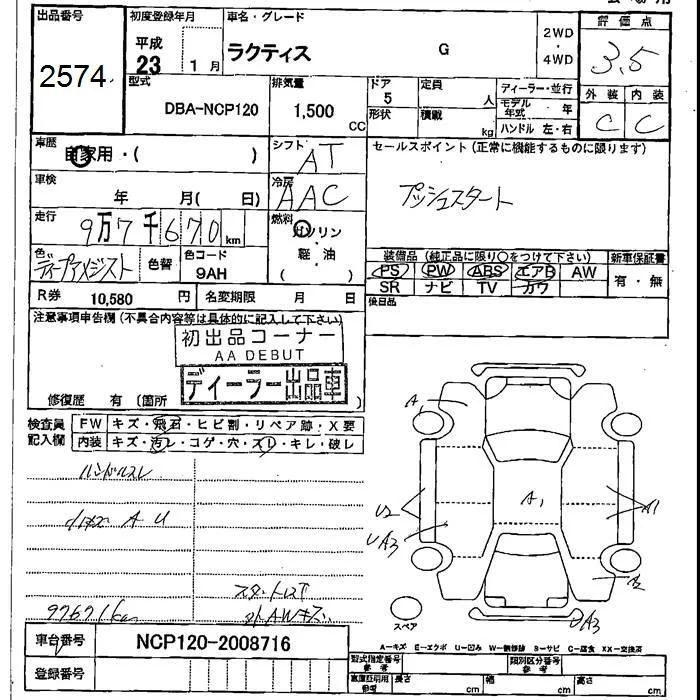 出品番号
2574
初度登録年月
平成
23 1月
車名・グレード
ラクティス G
2WD
・
4WD
評価点
3.5
型式
DBA-NCP120
排気量
1,500
CC
ドア
5
形状
定員
人
積載
kg
ディーラー・並行
モデル年式 年
ハンドル 左・右
外装 内装
C C
車歴
自家用・( )
シフト
AT
セールスポイント(正常に機能するものに限ります)
プッシュスタート
車検
年 月( 日)
冷房
AAC
走行
9万7千670km
燃料
ガソリン
・
軽油
( )
色
ディープアメジスト
色替
色コード
9AH
装備品(純正品に限り○をつけて下さい)
新車保証書
PS PW ABS エアB AW
SR ナビ TV カワ
有・無
R券 10,580 円
名変期限 月 日
後日品
注意事項申告欄(不具合内容等は具体的に記入して下さい)
初出品コーナー
AA DEBUT
ディーラー出品車
修復歴 有(箇所 )
検査員
記入欄
FW キズ・飛石・ヒビ割・リペア跡・X要
内装 キズ・汚レ・コゲ・穴・スレ・キレ・破レ
ハンドルスレ
A U
97671km
AWキズ
A1
A1
A1
U2
UA3
A2
UA3
スペア
車台番号
NCP120-2008716
A-キズ E-エクボ U-凹み W-補修跡 S-サビ C-腐食 XX-交換済
登録番号
型式指定番号
参考
類別区分番号
参考
車庫証明用
参考
長さ cm
幅 cm
高さ cm